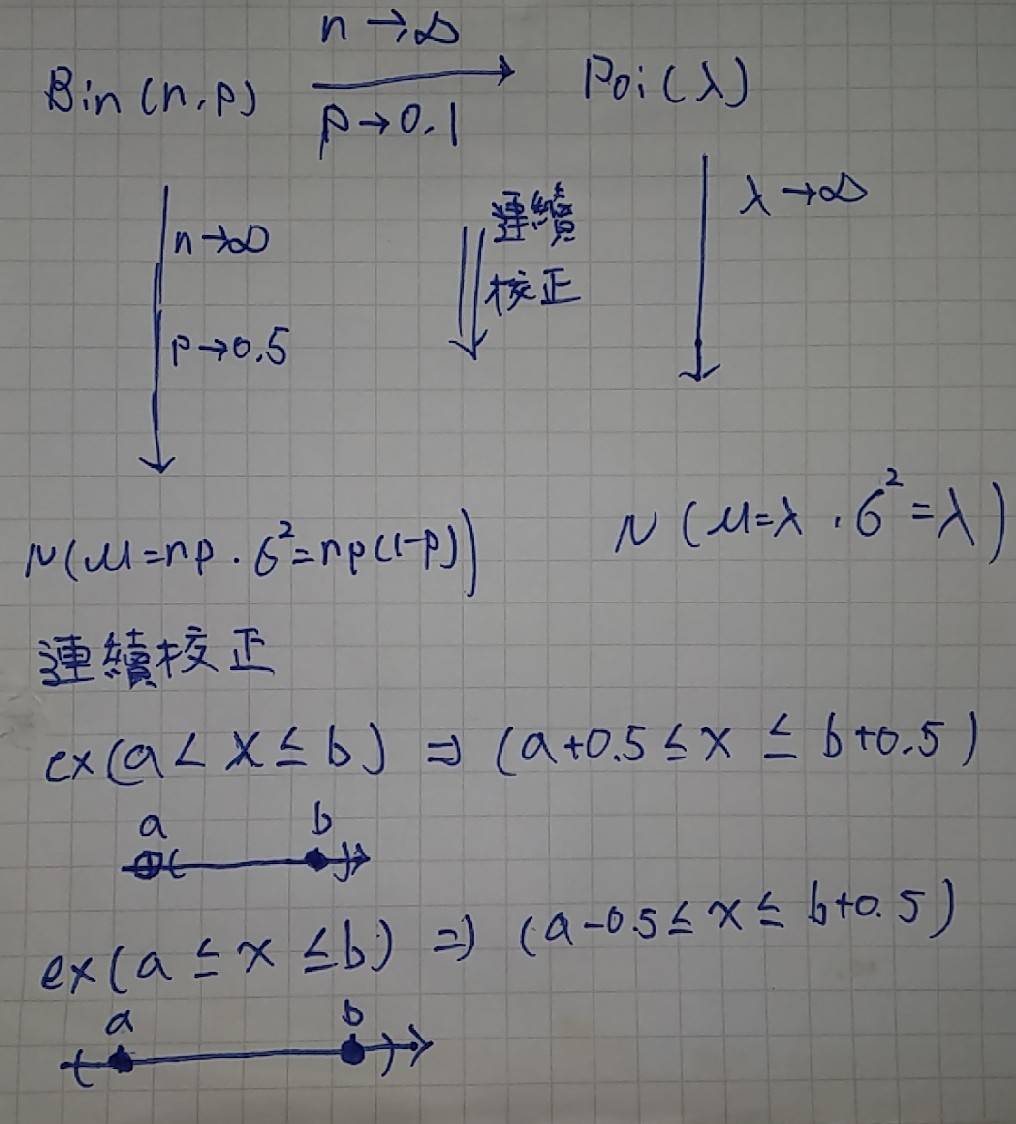 n→∞
Bin(n,p) Poi(λ)
p→0.1
n→∞ 連續 λ→∞
校正
p→0.5
N(μ=np, σ²=np(1-p)) N(μ=λ, σ²=λ)
連續校正
ex(a<x≤b) ⇒ (a+0.5≤x≤b+0.5)
a b
ex(a≤x≤b) ⇒ (a-0.5≤x≤b+0.5)
a b